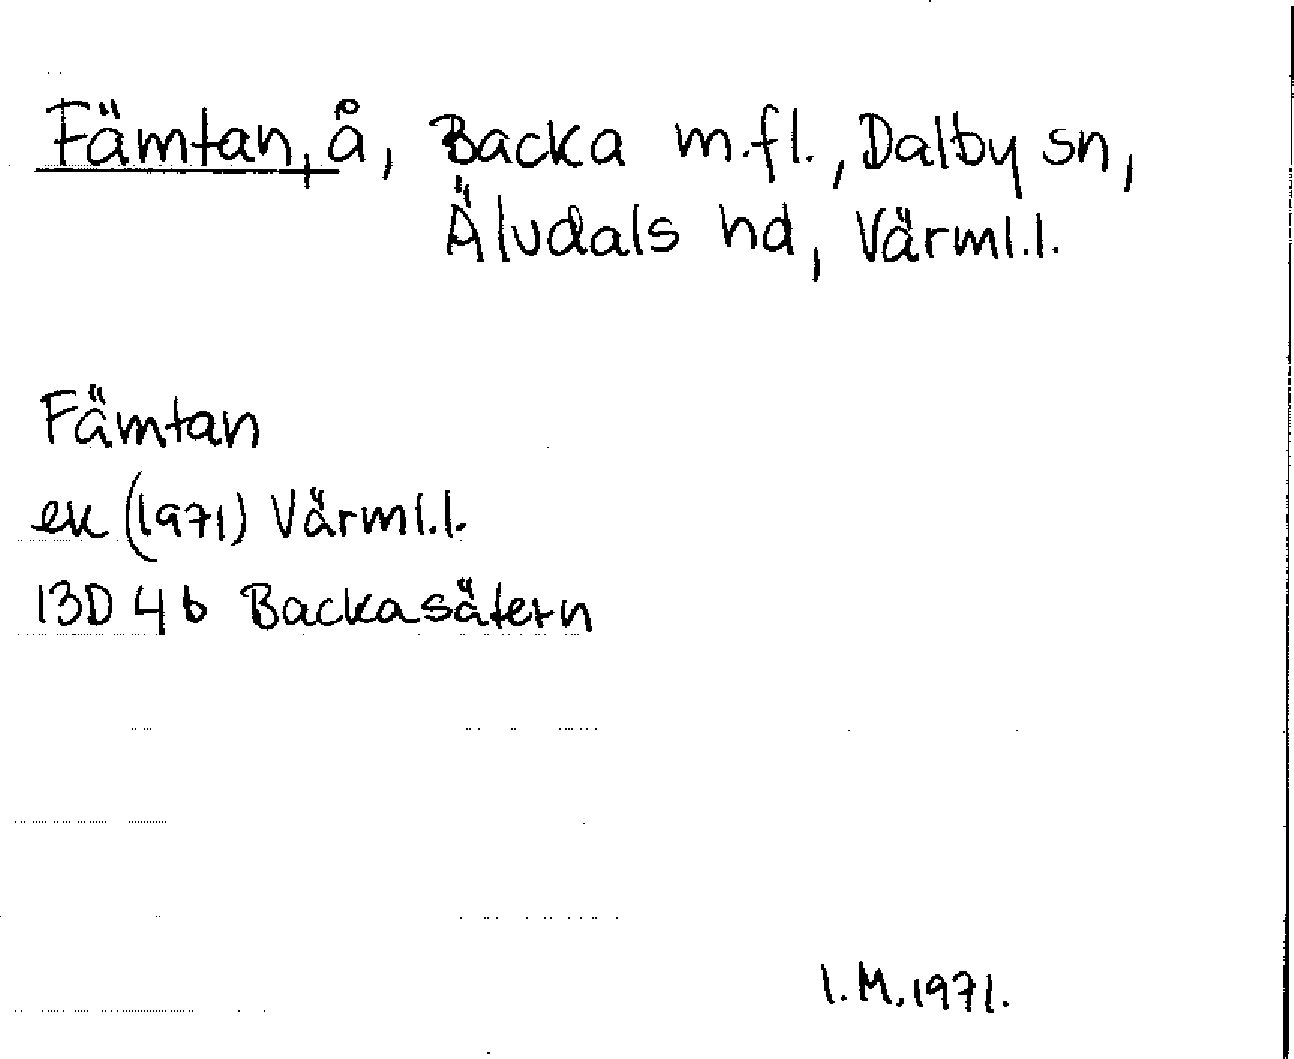 Fämtan, å, Backa m.fl., Dalby sn,
Älvdals hd, Värml.l.
Fämtan
ek (1971) Värml.l.
13D 4b Backasätern
I.M.1971.